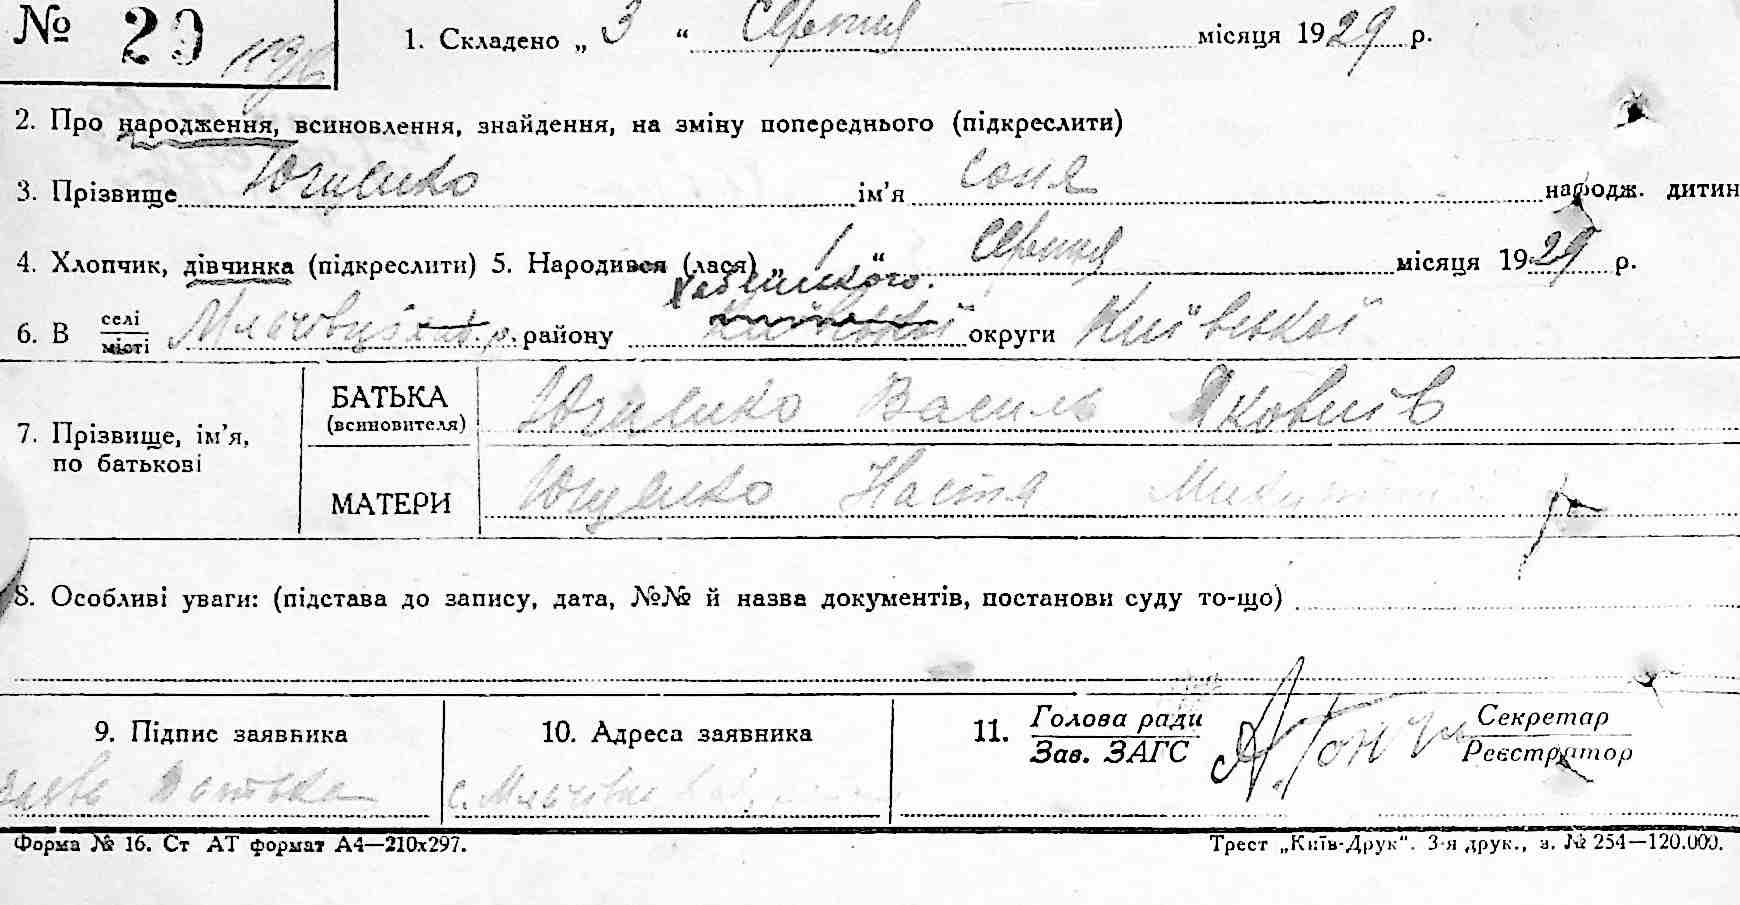 № 29
1. Складено „ 3 “ Серпня місяця 1929 р.
2. Про народження, всиновлення, знайдення, на зміну попереднього (підкреслити)
3. Прізвище Ющенко ім’я Соня народж. дитин
4. Хлопчик, дівчинка (підкреслити) 5. Народився (лася) „ 1 “ Серпня місяця 1929 р.
6. В селі місті району округи Київської
7. Прізвище, ім’я, по батькові
БАТЬКА (всиновителя) Ющенко Василь Яковлів
МАТЕРИ Ющенко Настя
8. Особливі уваги: (підстава до запису, дата, №№ й назва документів, постанови суду то-що)
9. Підпис заявника
10. Адреса заявника
11. Голова ради Секретар
Зав. ЗАГС Реєстратор
батька
с.
Форма № 16. Ст АТ формат А4—210х297.
Трест „Київ-Друк“. 3-я друк., з. № 254—120.000.